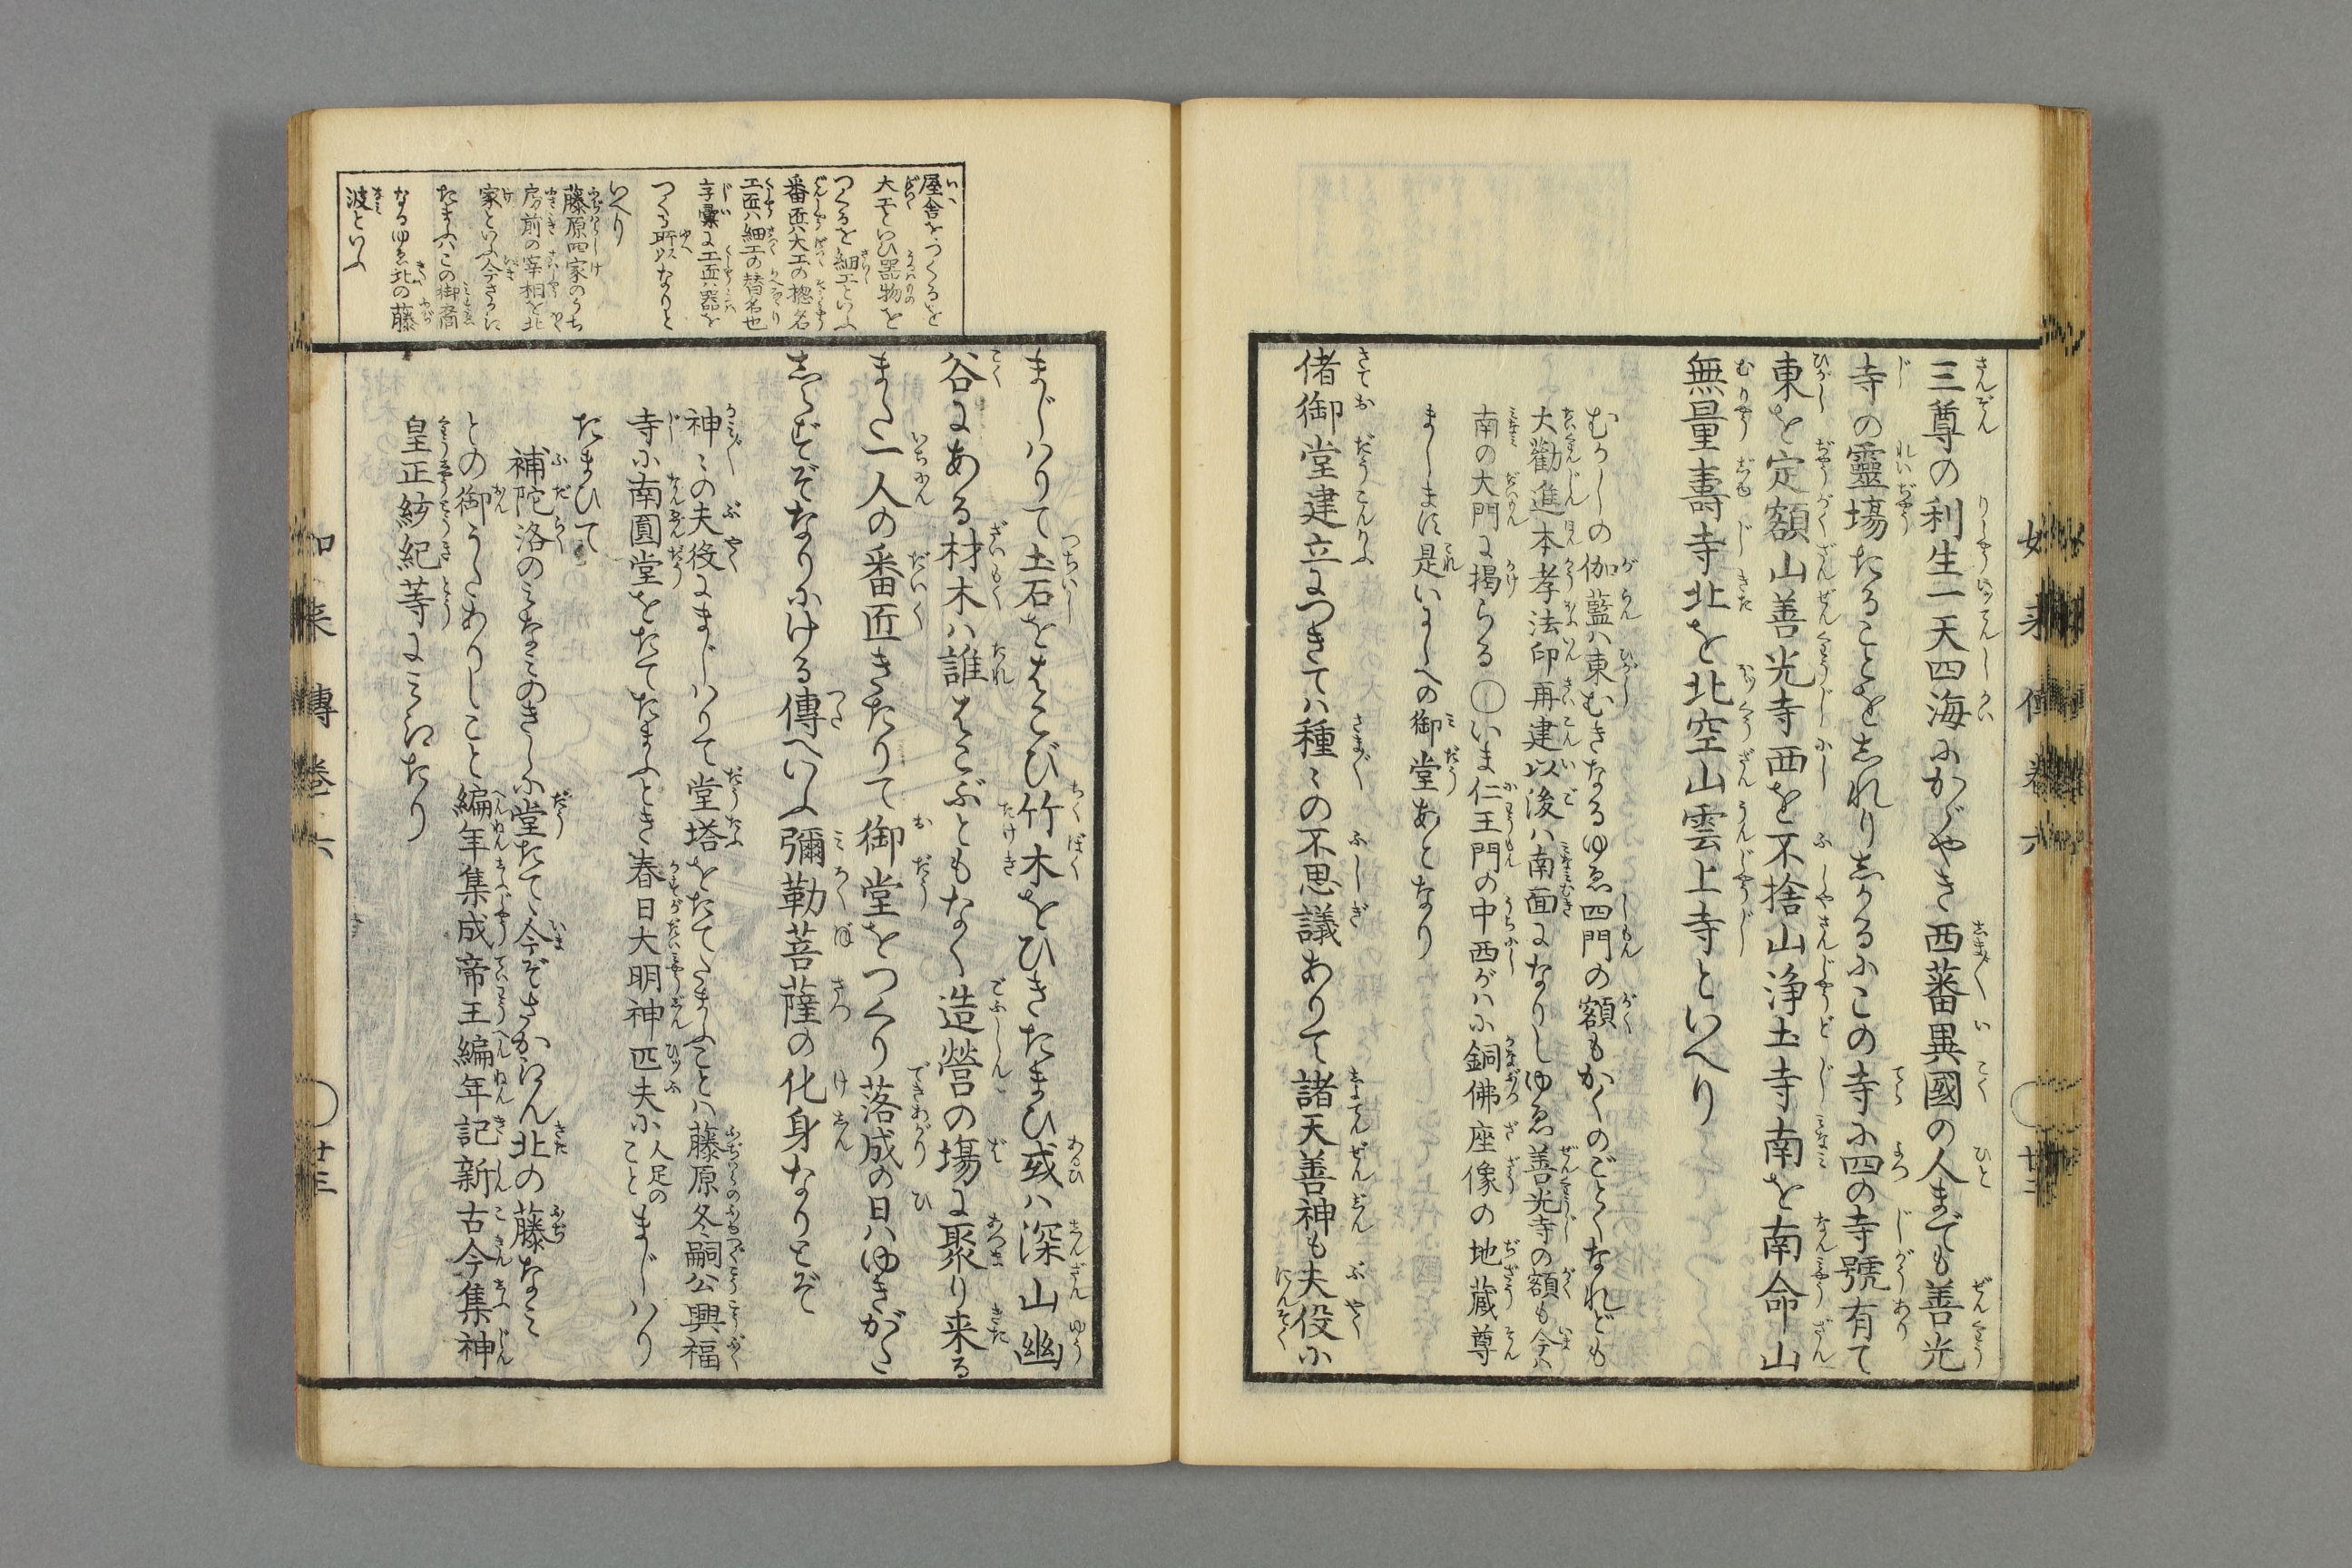 三尊の利生一天四海にかゞやき西蕃異國の人までも善光
寺の靈場たることをしれりしかるにこの寺に四の寺號有て
東を定額山善光寺西を不捨山浄土寺南を南命山
無量壽寺北を北空山雲上寺といへり
むかしの伽藍ハ東むきなるゆゑ四門の額もかくのごとくなれども
大勸進本孝法印再建以後ハ南面になりしゆゑ善光寺の額も今ハ
南の大門に掲らる〇いま仁王門の中西がハに銅佛座像の地蔵尊
まします是いにしへの御堂あとなり
偖御堂建立につきてハ種〻の不思議ありて諸天善神も夫役に
まじハりて土石をはこび竹木をひきたまひ或ハ深山幽
谷にある材木ハ誰はこぶともなく造營の場に聚り来る
また一人の番匠きたりて御堂をつくり落成の日ハゆきがた
しらずぞなりにける傳へいふ彌勒菩薩の化身なりとぞ
神〻の夫役にまじハりて堂塔をたてたまふことハ藤原冬嗣公興福
寺に南圓堂をたてたまふとき春日大明神匹夫に人足のことまじハり
たまひて
補陀洛のみなみのきしに堂たて今ぞさかえん北の藤なみ
との御うたありしこと編年集成帝王編年記新古今集神
皇正統紀等にみえたり
屋舎をつくるを
大工といひ器物を
つくるを細工といふ
番匠ハ大工の揔名
工匠ハ細工の替名也
字彙に工匠ハ器を
つくる所以なりと
いへり
藤原四家のうち
房前の宰相を北
家といふ今さかに
たまふハこの御裔
なるゆゑ北の藤
波といふ
如来傳巻六
廿三